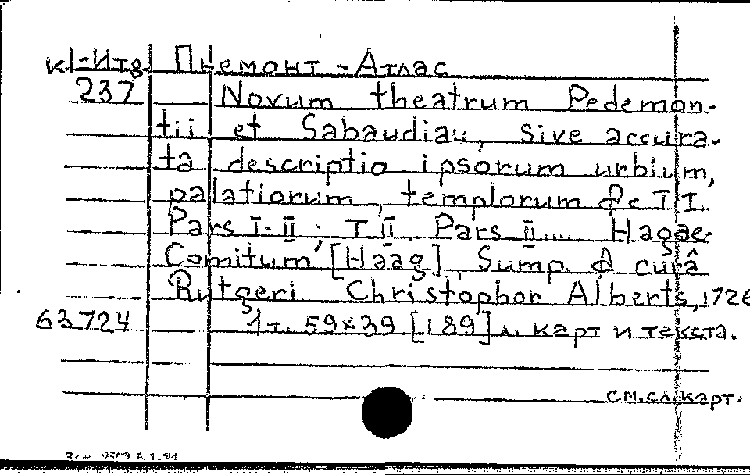 К1-Итз. Пьемонт - Атлас
237 Novum theatrum Pedemon-
tii et Sabaudiau, sive accura-
ta descriptio ipsorum urbium,
palatiorum, templorum &c T I.
Pars I-II; T II Pars II... Hagae-
Comitum [Haag], Sump. & curâ
Rutgeri Christophor Alberts, 1726
63724 1т. 59x39 [189] л. карт и текста.
см.сл.карт.